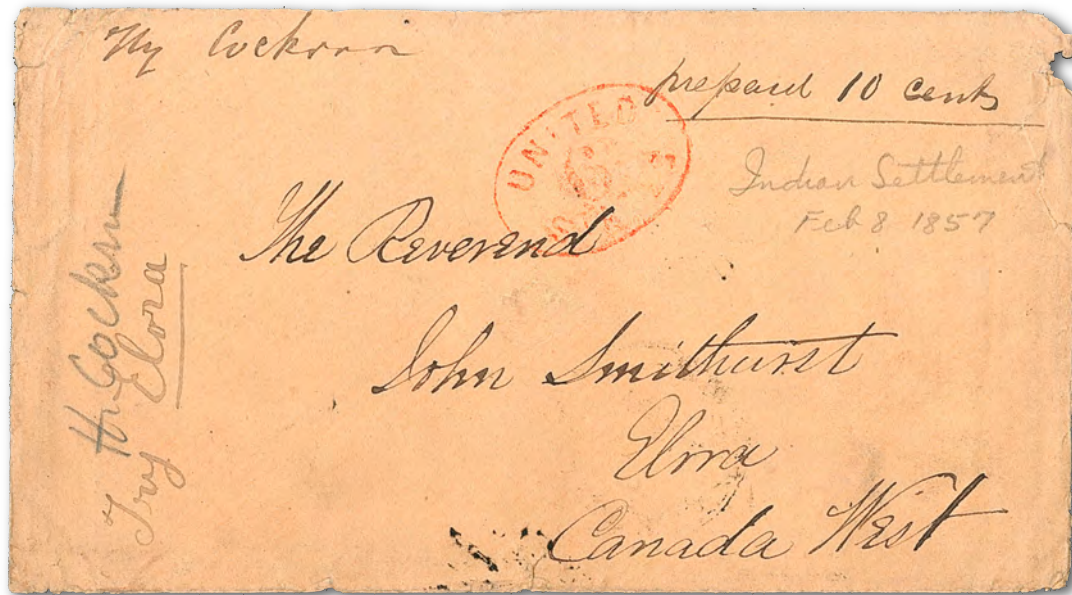 Hy Cockran
prepaid 10 cents
UNITED
6d
Indian Settlement
Feb 8 1857
The Reverend
John Smithurst
Elora
Canada West
H. Cockran
Try Elora